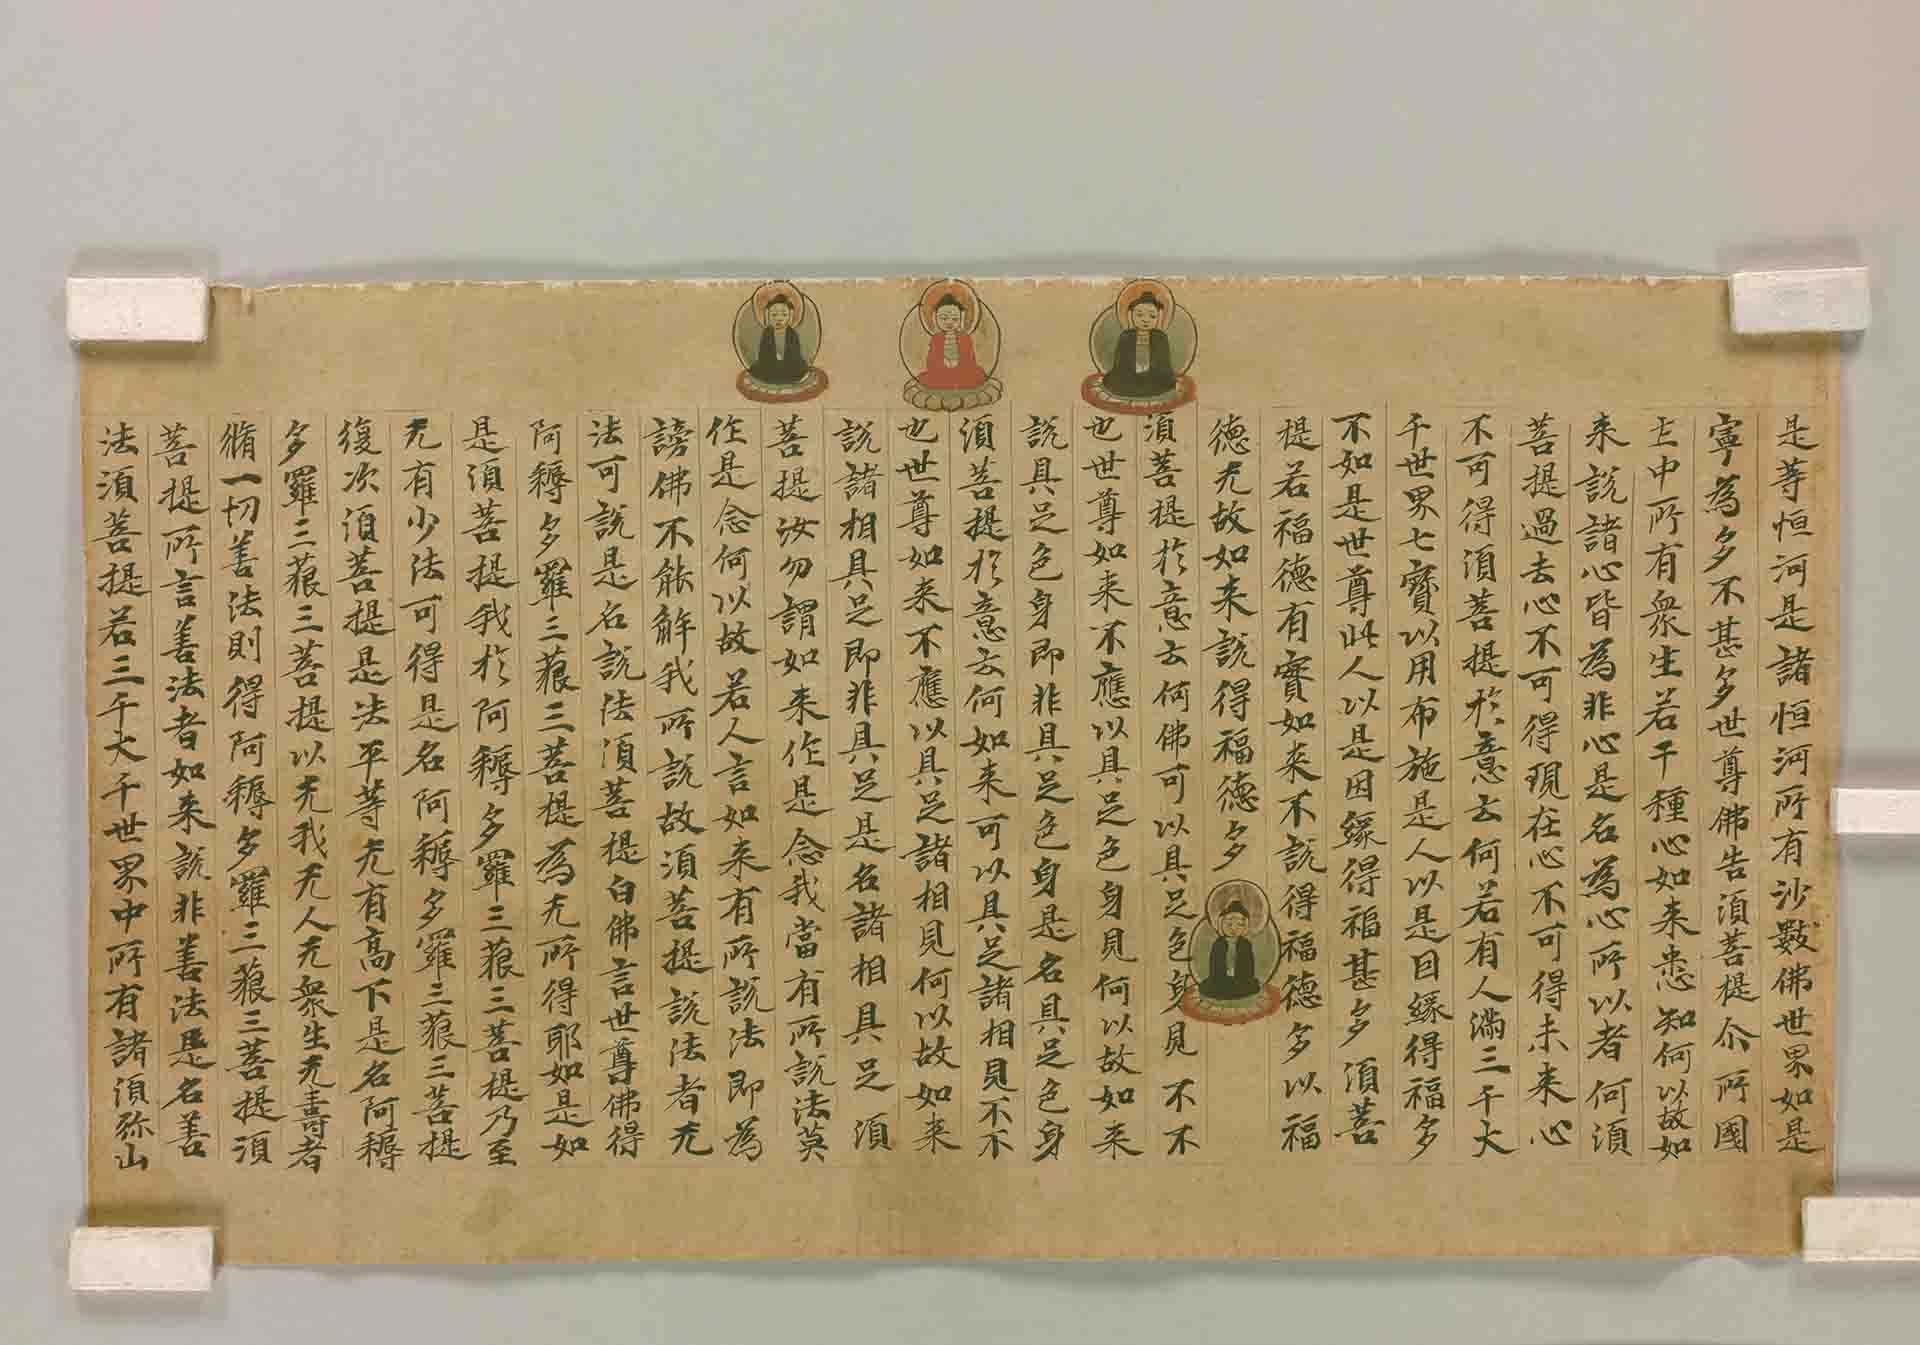 是等恒河是諸恒河所有沙數佛世界如是
寧為多不甚多世尊佛告須菩提尒所國
土中所有衆生若干種心如来悉知何以故如
来說諸心皆為非心是名為心所以者何須
菩提過去心不可得現在心不可得未来心
不可得須菩提於意云何若有人滿三千大
千世界七寶以用布施是人以是因緣得福多
不如是世尊此人以是因緣得福甚多須菩
提若福德有實如来不說得福德多以福
德无故如来說得福德多
須菩提於意云何佛可以具足色身見不不
也世尊如来不應以具足色身見何以故如来
說具足色身即非具足色身是名具足色身
須菩提於意云何如来可以具足諸相見不不
也世尊如来不應以具足諸相見何以故如来
說諸相具足即非具足是名諸相具足須
菩提汝勿謂如来作是念我當有所說法莫
作是念何以故若人言如来有所說法即為
謗佛不能解我所說故須菩提說法者无
法可說是名說法須菩提白佛言世尊佛得
阿耨多羅三藐三菩提為无所得耶如是如
是須菩提我於阿耨多羅三藐三菩提乃至
无有少法可得是名阿耨多羅三藐三菩提
復次須菩提是法平等无有高下是名阿耨
多羅三藐三菩提以无我无人无衆生无壽者
脩一切善法則得阿耨多羅三藐三菩提須
菩提所言善法者如来說非善法是名善
法須菩提若三千大千世界中所有諸須弥山